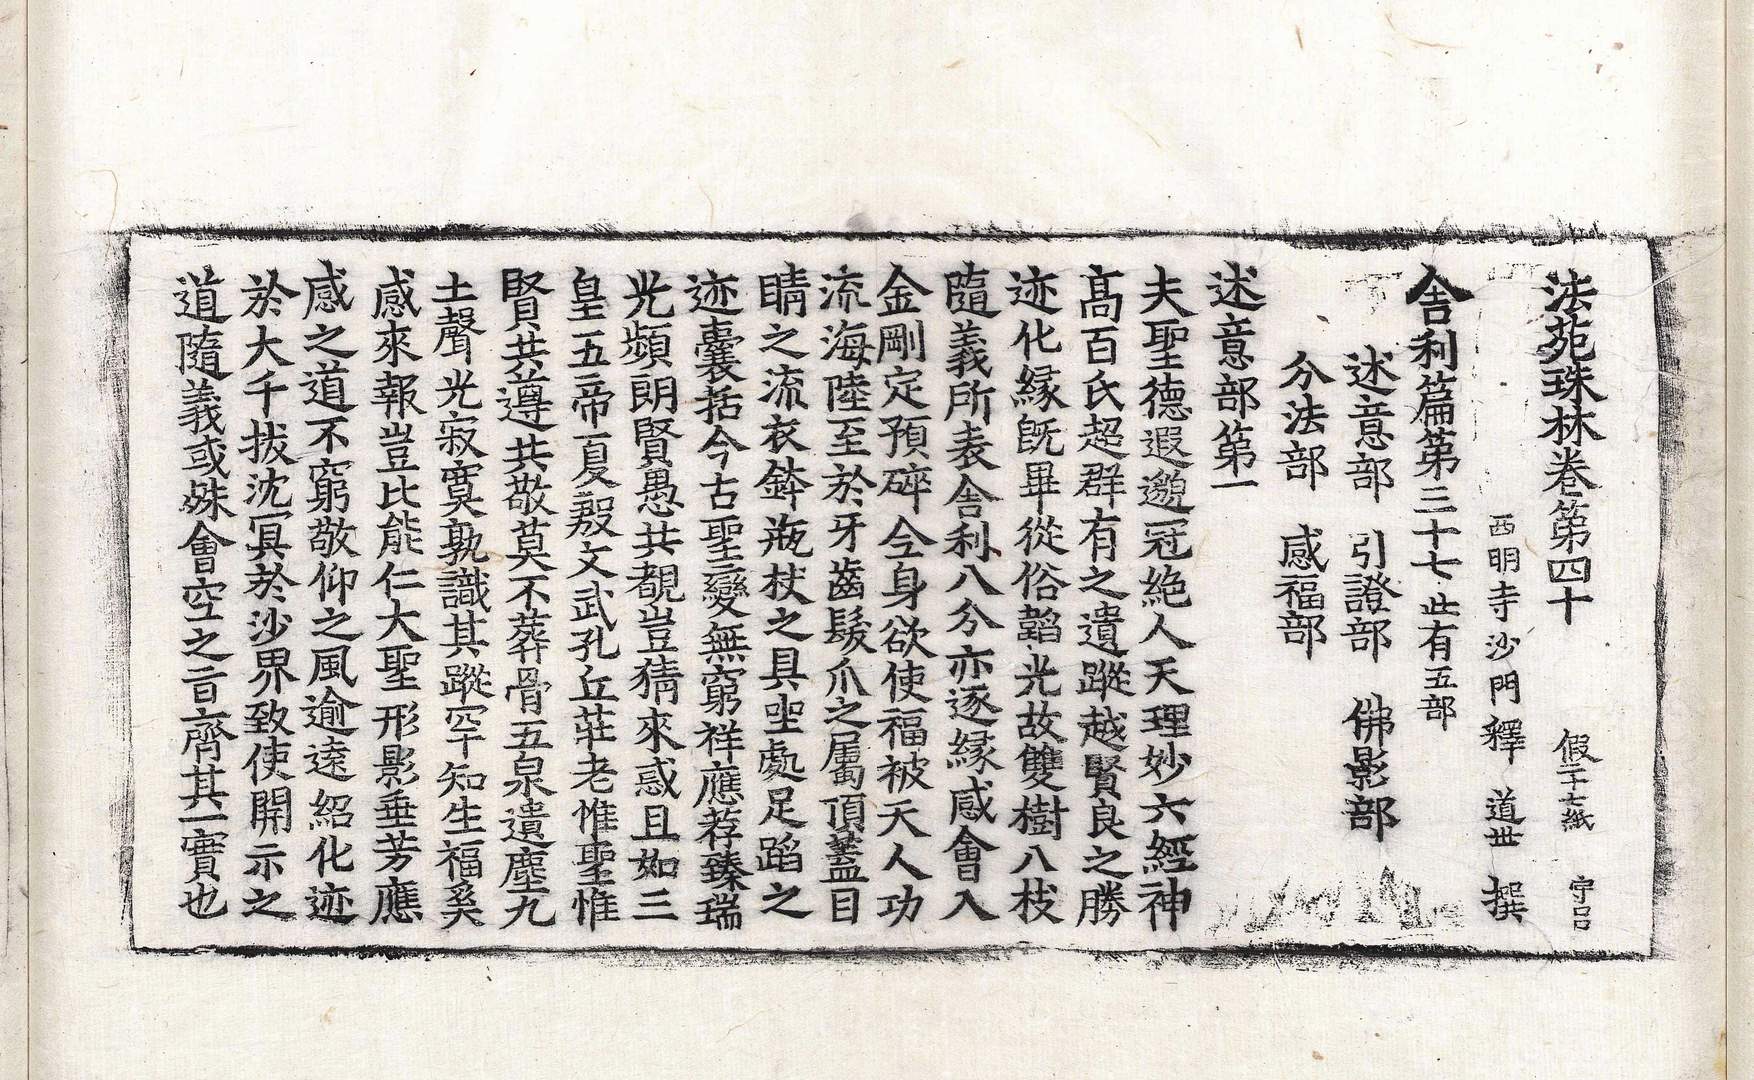 法苑珠林卷第四十　假二十七紙　宇呂
西明寺沙門釋　道世　撰
舎利篇第三十七　此有五部
述意部　引證部　佛影部
分法部　感福部
述意部第一
夫聖德遐邈冠絶人天理妙六經神
髙百氏超群有之遺蹤越賢良之勝
迹化縁旣畢從俗韜光故雙樹八枝
隨義所表舎利八分亦逐縁感會入
金剛定預碎今身欲使福被天人功
流海陸至於牙齒髮爪之屬頂蓋目
睛之流衣鉢瓶杖之具坐處足蹈之
迹囊括今古聖變無窮祥應荐臻瑞
光頻朗賢愚共覩豈猜來惑且如三
皇五帝夏殷文武孔丘莊老惟聖惟
賢共遵共敬莫不葬骨五泉遺塵九
土聲光寂寞孰識其蹤罕知生福奚
感來報豈比能仁大聖形影垂芳應
感之道不窮敬仰之風逾遠紹化迹
於大千拔沈冥於沙界致使開示之
道隨義或殊會空之旨齊其一實也